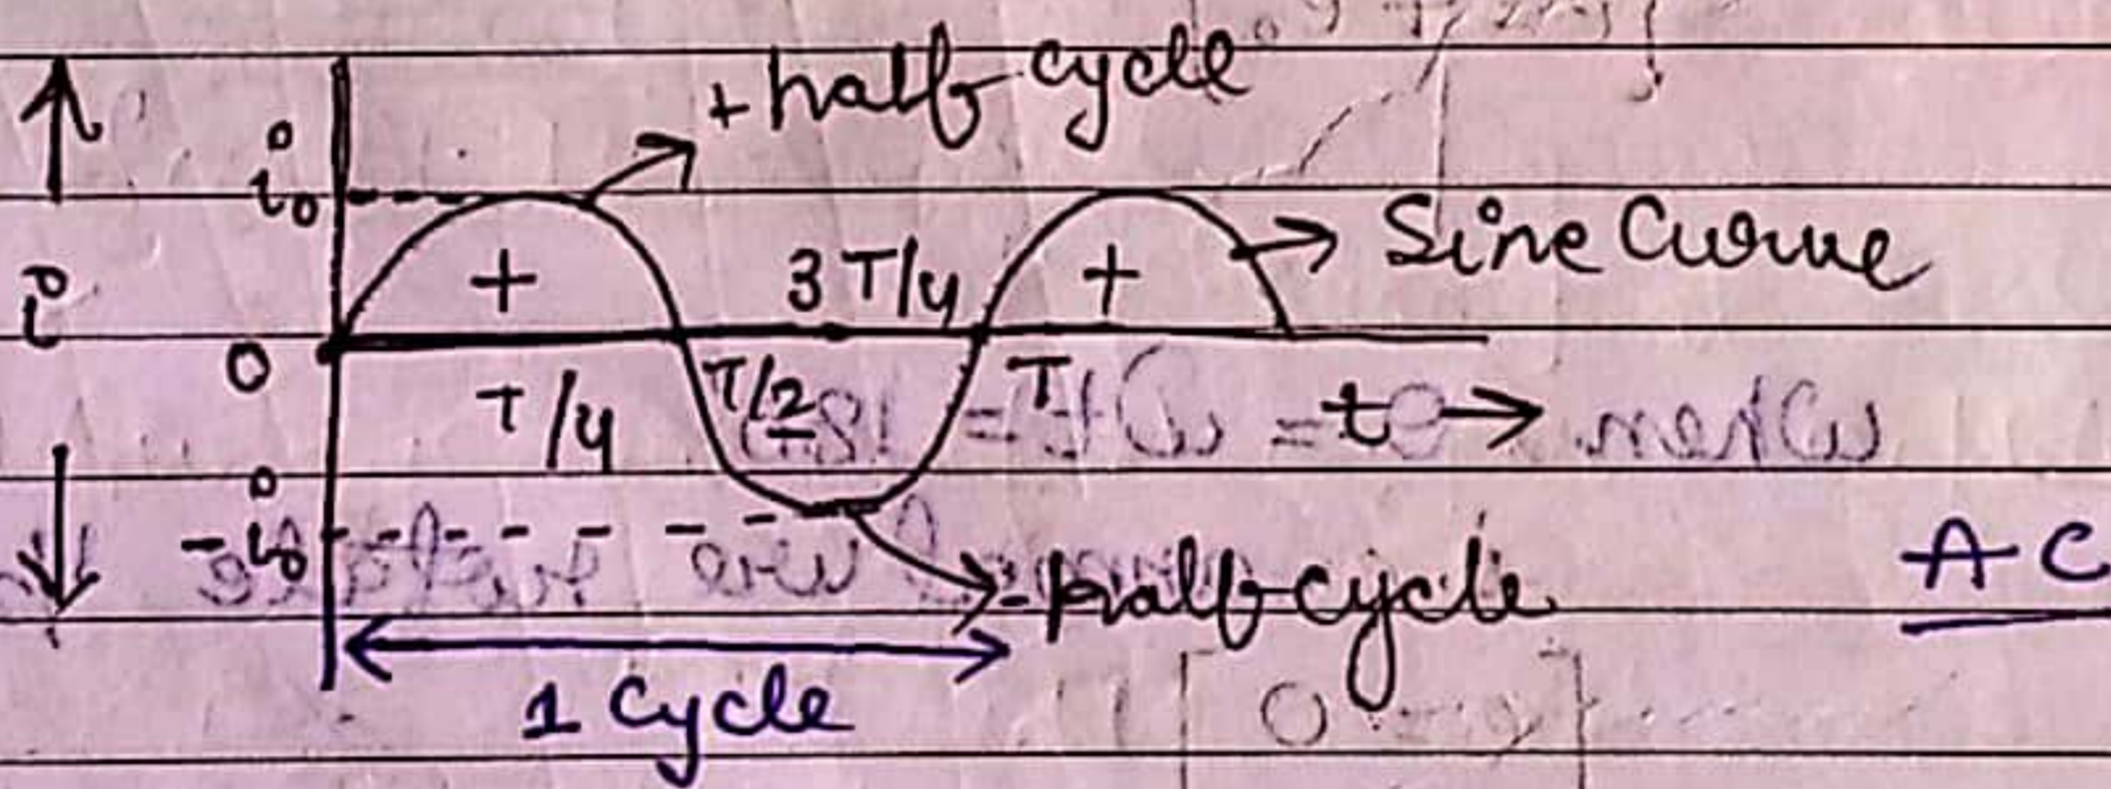 + half cycle
i₀
+
3T/4
+
Sine Curve
i
0
T/4
T/2
T
t →
-i₀
- half cycle
AC
1 Cycle